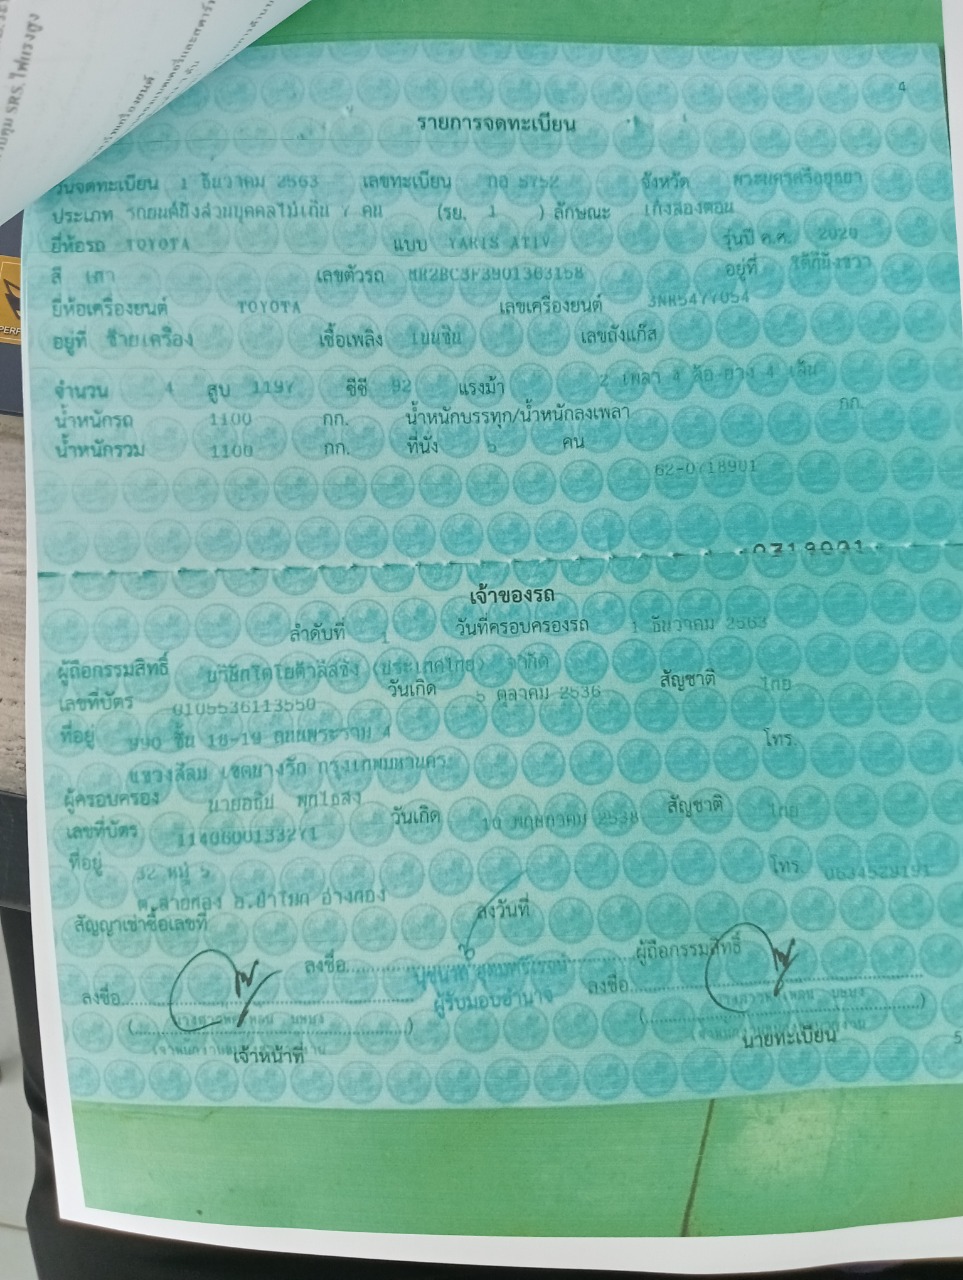 ไฟแรงสูง
SRS
4
รายการจดทะเบียน
วันจดทะเบียน 1 ธันวาคม 2563 เลขทะเบียน กอ 5752 จังหวัด พระนครศรีอยุธยา
ประเภท รถยนต์นั่งส่วนบุคคลไม่เกิน 7 คน (รย. 1 ) ลักษณะ เก๋งสองตอน
ยี่ห้อรถ TOYOTA แบบ YARIS ATIV รุ่นปี ค.ศ. 2020
สี เทา เลขตัวรถ MR2BC3F3901363158 อยู่ที่ ใต้ที่นั่งขวา
ยี่ห้อเครื่องยนต์ TOYOTA เลขเครื่องยนต์ 3NR5477054
อยู่ที่ ซ้ายเครื่อง เชื้อเพลิง เบนซิน เลขถังแก๊ส
จำนวน 4 สูบ 1197 ซีซี 92 แรงม้า 2 เพลา 4 ล้อ ยาง 4 เส้น
น้ำหนักรถ 1100 กก. น้ำหนักบรรทุก/น้ำหนักลงเพลา กก.
น้ำหนักรวม 1100 กก. ที่นั่ง 5 คน
62-0718901
เจ้าของรถ
ลำดับที่ 1 วันที่ครอบครองรถ 1 ธันวาคม 2563
ผู้ถือกรรมสิทธิ์ บริษัทโตโยต้าลีสซิ่ง (ประเทศไทย) จำกัด
เลขที่บัตร 0105536113550 วันเกิด 5 ตุลาคม 2536 สัญชาติ ไทย
ที่อยู่ 990 ชั้น 18-19 ถนนพระราม 4 โทร.
แขวงสีลม เขตบางรัก กรุงเทพมหานคร
ผู้ครอบครอง นายอธิป
เลขที่บัตร 1140600133271 วันเกิด 10 พฤษภาคม 2538 สัญชาติ ไทย
ที่อยู่ 32 หมู่ 5 โทร. 0634529191
ต.สายทอง อ.ป่าโมก อ่างทอง
สัญญาเช่าซื้อเลขที่ ลงวันที่
ลงชื่อ ผู้ถือกรรมสิทธิ์
ผู้รับมอบอำนาจ
ลงชื่อ ลงชื่อ
เจ้าหน้าที่ นายทะเบียน
5